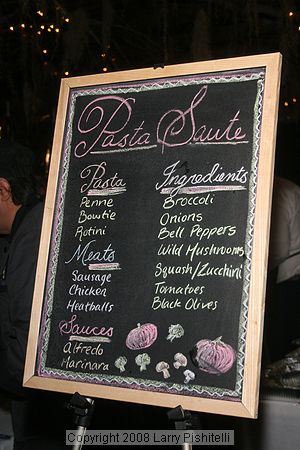 Pasta Saute
Pasta
Penne
Bowtie
Rotini
Meats
Sausage
Chicken
Meatballs
Sauces
Alfredo
Marinara
Ingredients
Broccoli
Onions
Bell Peppers
Wild Mushrooms
Squash/Zucchini
Tomatoes
Black Olives
Copyright 2008 Larry Pishitelli